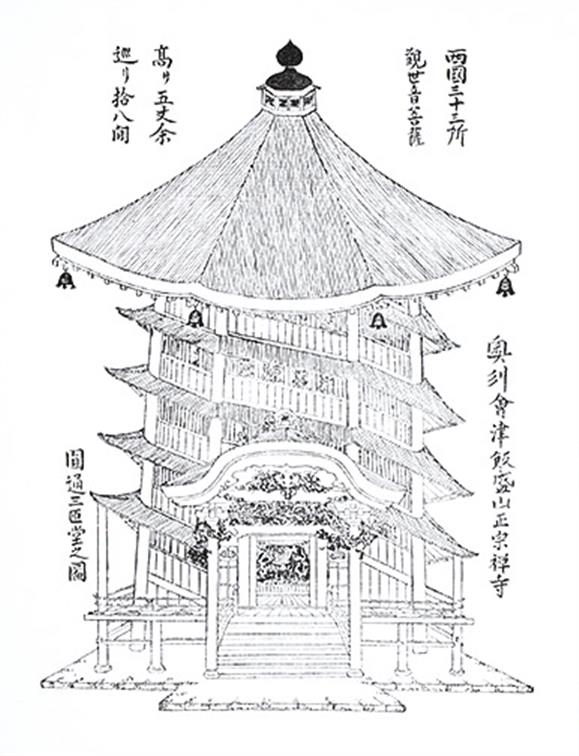 西國三十三所
觀世音菩薩
高サ五丈余
巡リ拾八間
奥州會津飯盛山正宗禅寺
圓通三匝堂之圖